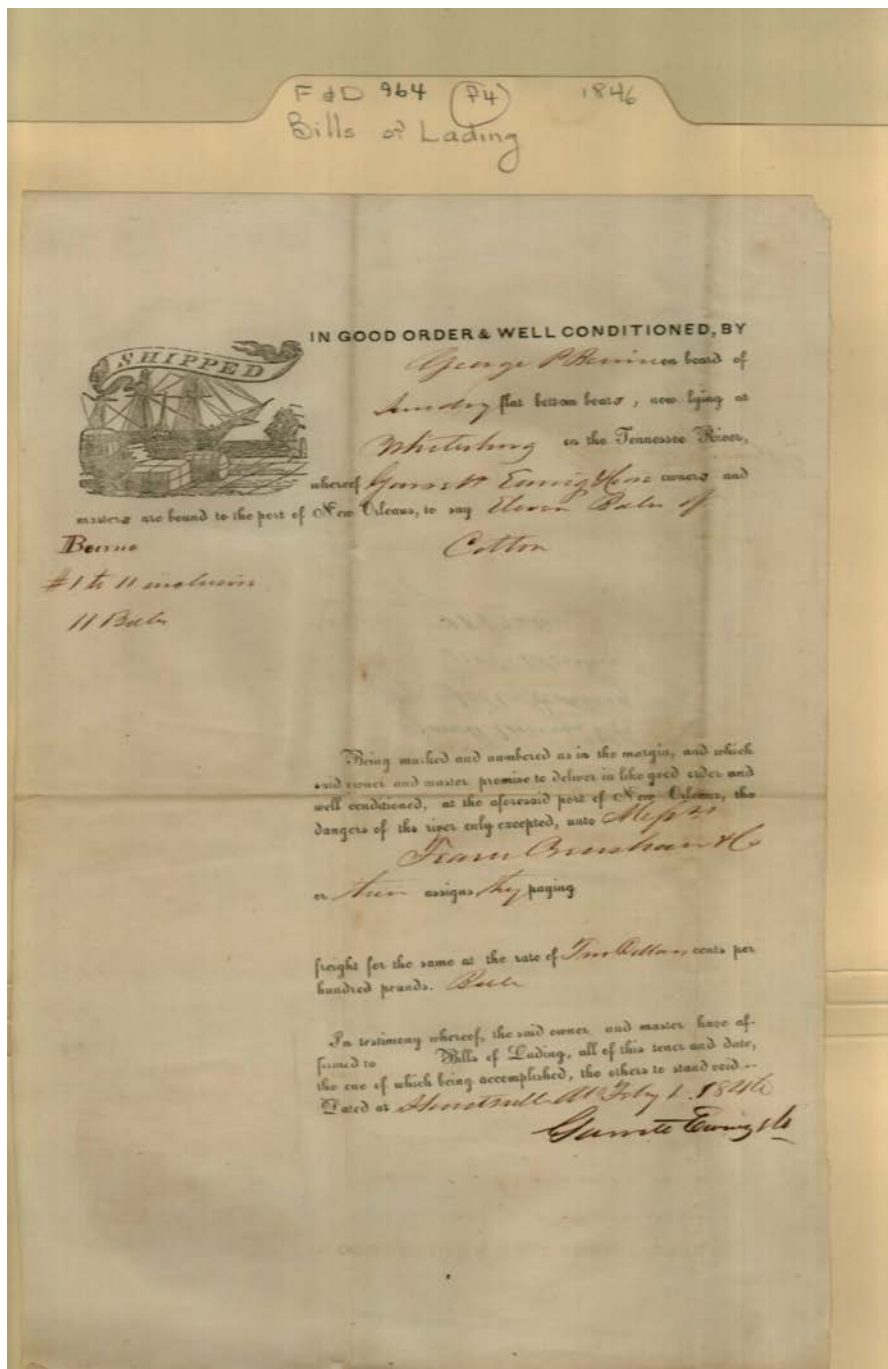 F & D 964 (P4) 1846
Bills of Lading
SHIPPED
IN GOOD ORDER & WELL CONDITIONED, BY
George P Beirne on board of
Sundry flat bottom boats, now lying at
Whitesburg on the Tennessee River,
whereof Garrett Ewing & owners and
masters are bound to the port of New Orleans, to say Eleven Bales of
Cotton
Beirne
#1 to 11 inclusive
11 Bales
Being marked and numbered as in the margin, and which
said owner and master promise to deliver in like good order and
well conditioned, at the aforesaid port of New Orleans, the
dangers of the river only excepted, unto Messrs
Fearn & Co
or their assigns they paying
freight for the same at the rate of Two Dollars, cents per
hundred pounds. Bale
In testimony whereof, the said owner and master have af-
firmed to Bills of Lading, all of this tenor and date,
the one of which being accomplished, the others to stand void.--
Dated at Huntsville Al Feby 1. 1846
Garrett Ewing & Co